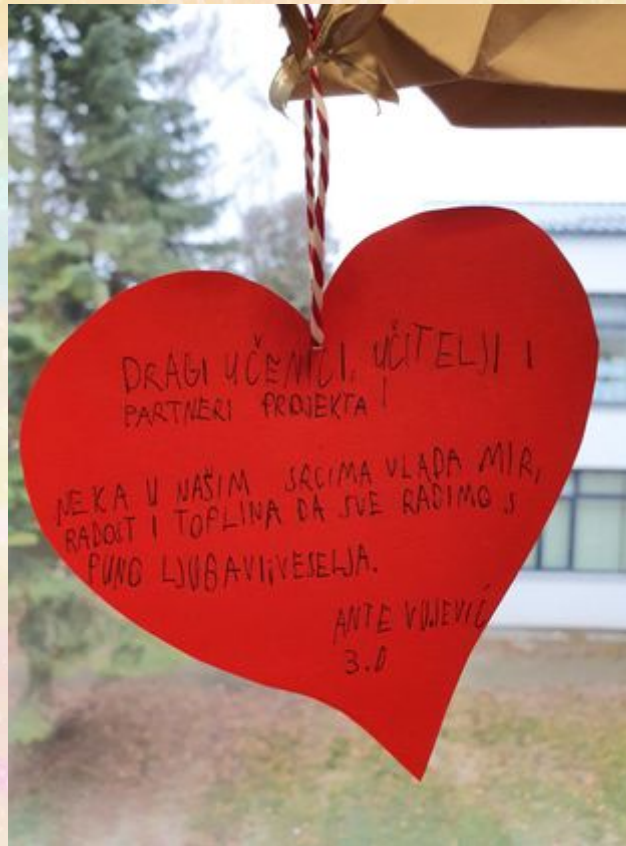 DRAGI UČENICI, UČITELJI I
PARTNERI PROJEKTA!
NEKA U NAŠIM SRCIMA VLADA MIR,
RADOST I TOPLINA DA SVE RADIMO S
PUNO LJUBAVI I VESELJA.
ANTE VUJEVIĆ
3.D